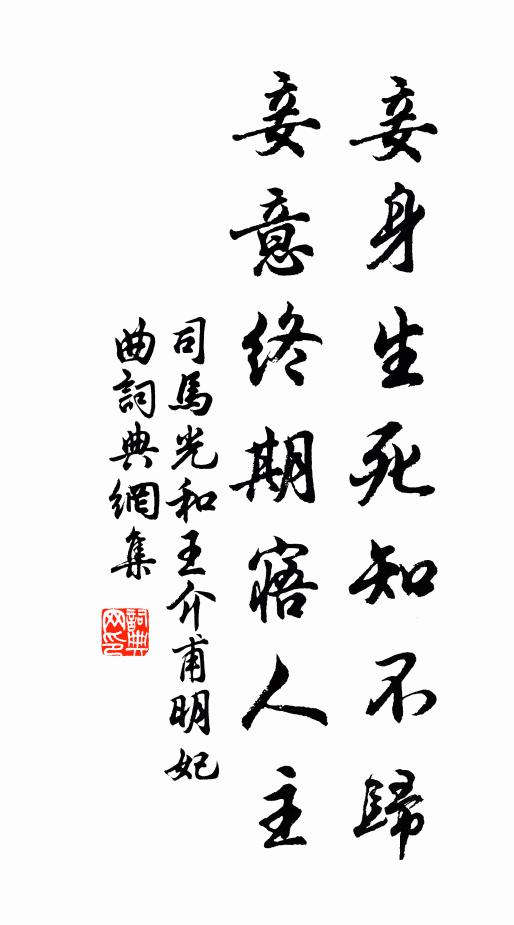 妾身生死知不歸
妾意終期寤人主
司馬光和王介甫明妃
曲詞典網集
詞典
网印